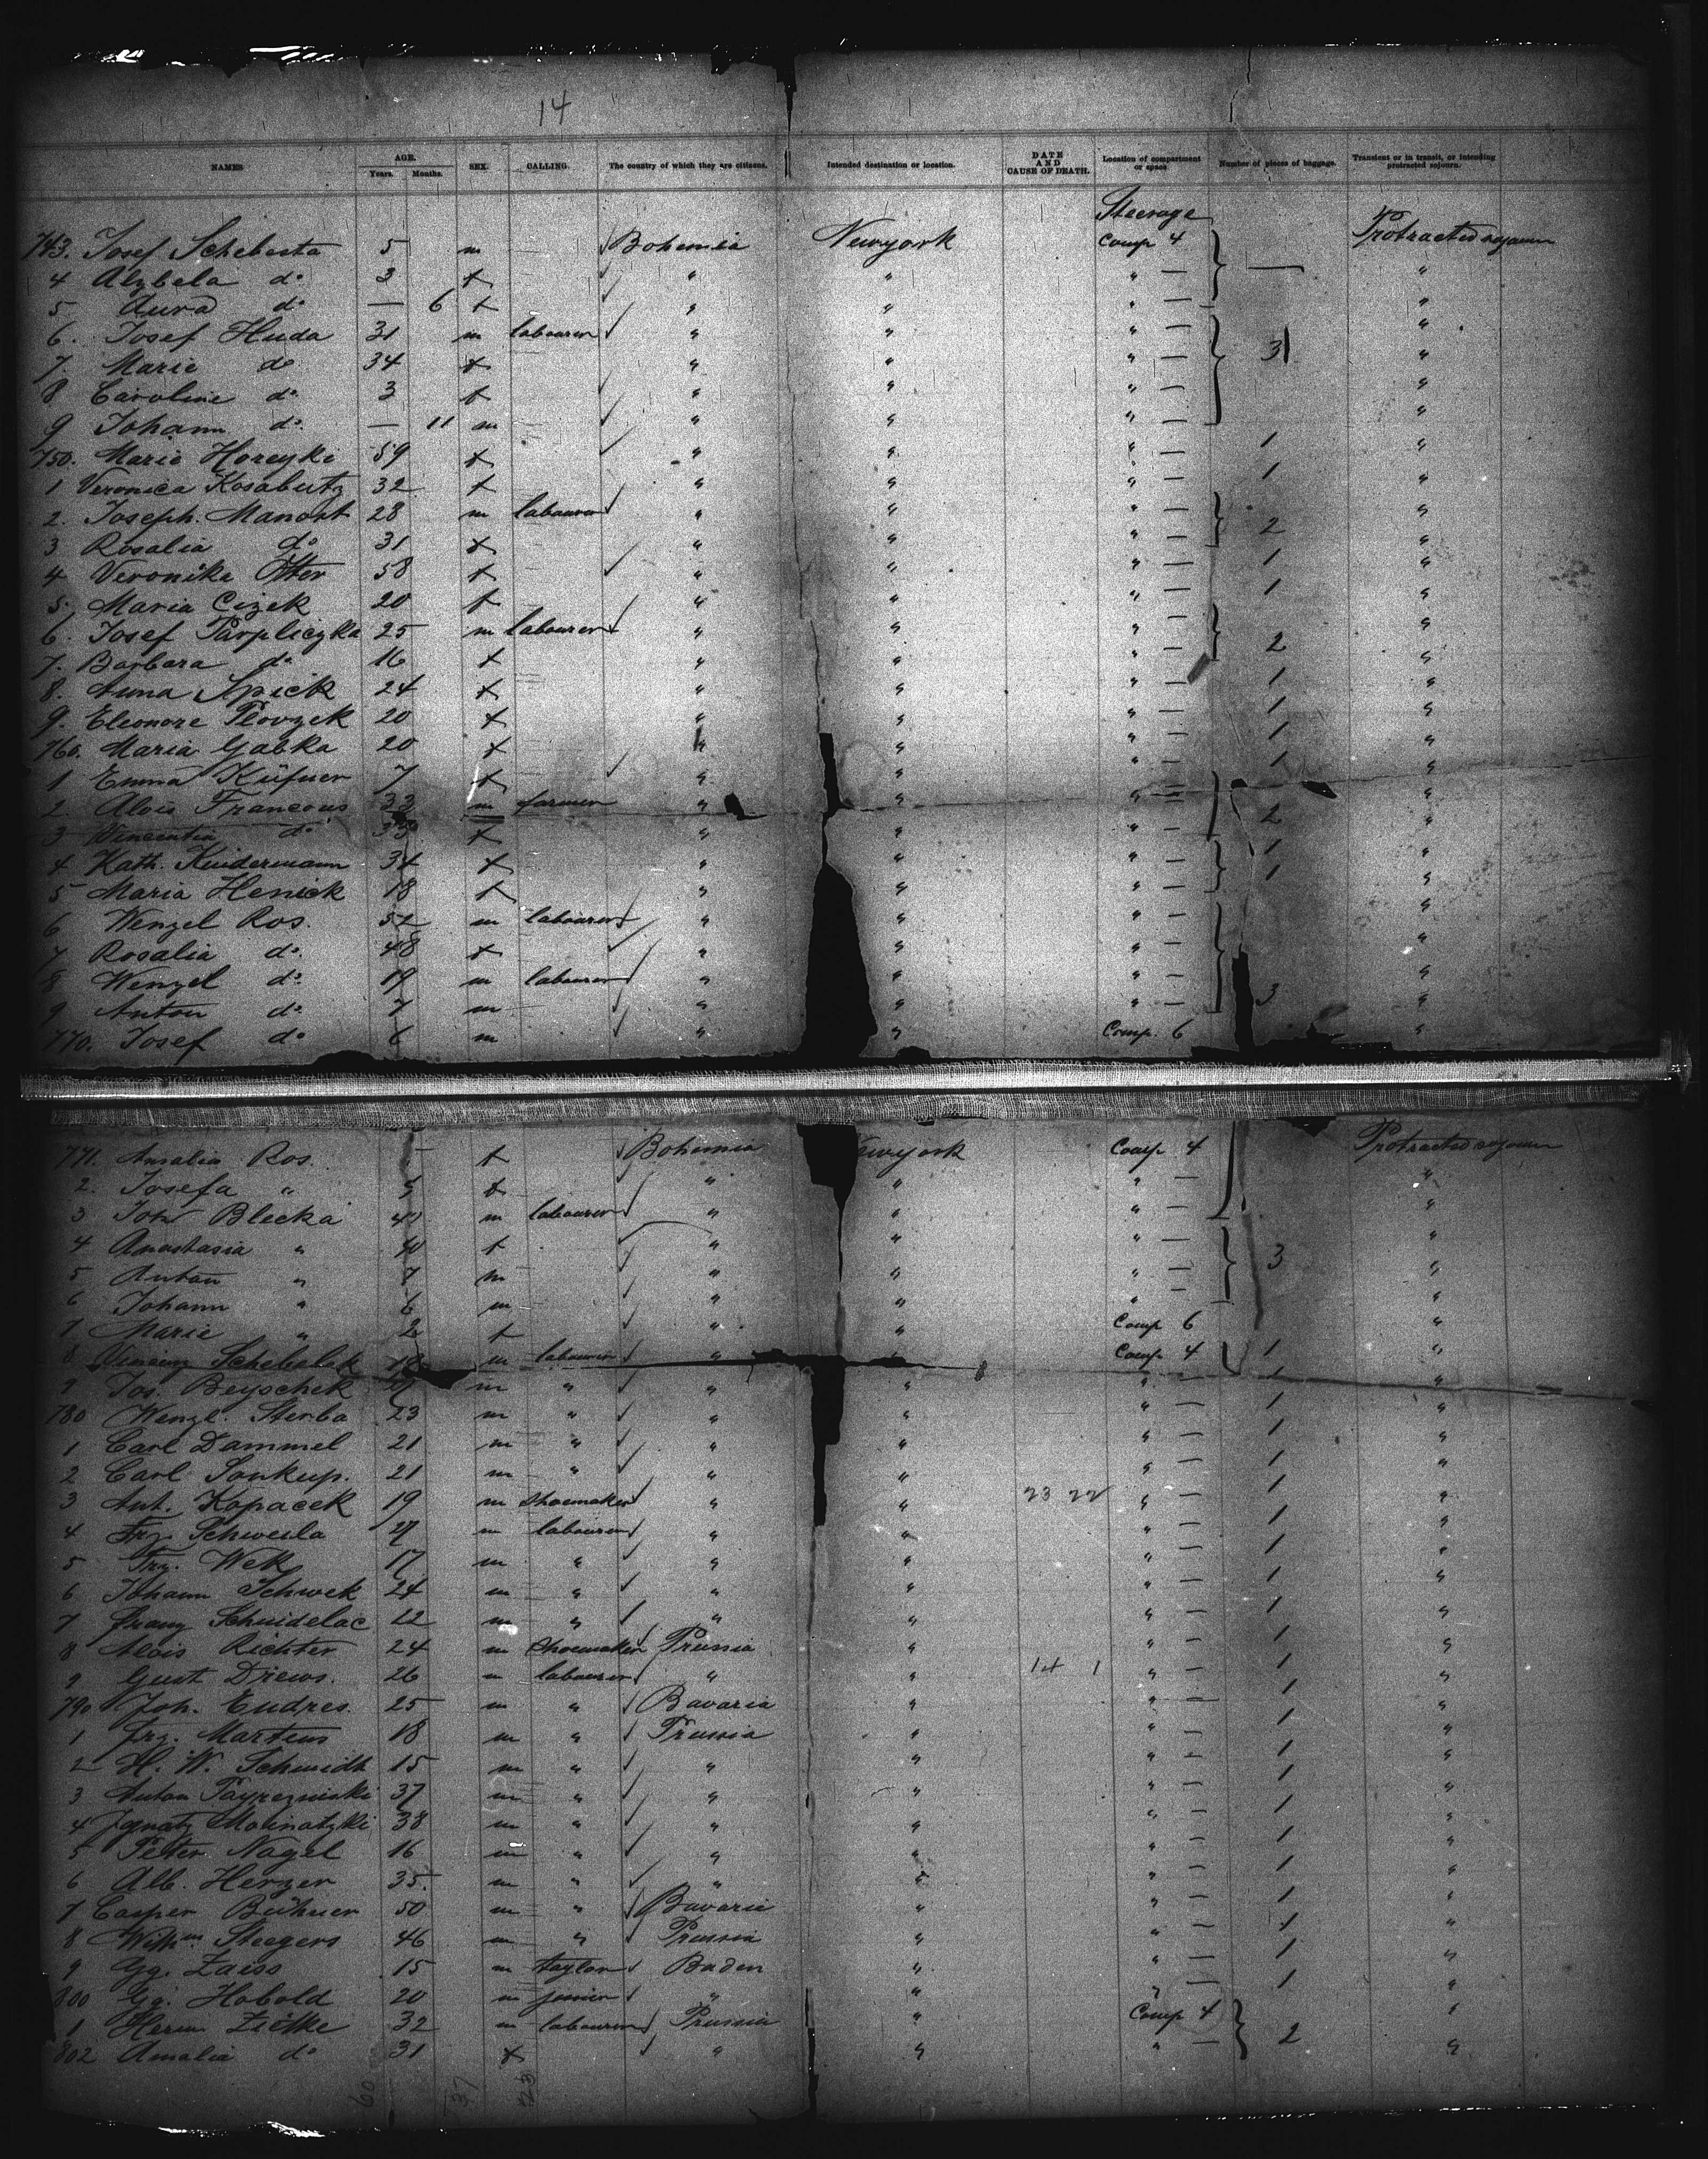 14
NAMES AGE. Years. Months. SEX. CALLING. The country of which they are citizens. Intended destination or location. DATE AND CAUSE OF DEATH. Location of compartment or space Number of pieces of baggage. Transient or in transit, or intending protracted sojourn.
Steerage
743. Josef Schebesta 5 m — Bohemia Newyork Comp 4 — Protracted sojourn
4 Alzbela do 3 f — " " " — "
5 do — 6 f — " " " — "
6. Josef Huda 31 m labourer " " " — "
7. Marie do 34 f — " " " — 3 "
8 Caroline do 3 f — " " " — "
9 Johann do — 11 m — " " " — "
750. Marie Horeyki 59 f — " " " — 1 "
1 Veronica Kosabutz 32 f — " " " — 1 "
2. Joseph. Manort 28 m labourer " " " — "
3 Rosalia do 31 f — " " " — 2 "
4 Veronika Otter 58 f — " " " — 1 "
5. Maria Cizek 20 f — " " " — 1 "
6. Josef 25 m labourer " " " — "
7. Barbara do 16 f — " " " — 2 "
8. Anna Spick 24 f — " " " — 1 "
9. Eleonore 20 f — " " " — 1 "
760. Maria Gabka 20 f — " " " — 1 "
1 Emma Küfner 7 f — " " " — 1 "
2. Alois Francous 33 m farmer " " " — 2 "
3 Vincentia do 33 f " " " — "
4 Kath. Kindermann 34 f — " " " — 1 "
5 Maria Henick 18 f — " " " — 1 "
6 Wenzel Ros. 52 m labourer " " " — "
7 Rosalia do. 48 f — " " " — "
8 Wenzel do. 19 m labourer " " " — "
9 Anton do 7 m — " " " — 3 "
770. Josef do 6 m " " Comp. 6 "
771. Amalia Ros. f — Bohemia ewyork Comp 4 Protracted sojourn
2. Josefa " 5 f — " " " — "
3 Joh Blecka 40 m labourer " " " — "
4 Anastasia " 40 f " " " — "
5 Anton " 7 m — " " " — 3 "
6 Johann " 6 m — " " " — "
7 Marie " 2 f — " " Comp 6 "
8 Schebalek m labourer " " Comp 4 1 "
9 Jos. Beyschek m " " " " — 1 "
780 Wenzl. Sterba 23 m " " " " — 1 "
1 Carl Dammel 21 m " " " " — 1 "
2 Carl Soukup. 21 m " " " " — 1 "
3 Ant. Kopacek 19 m shoemaker " " 23 22 " — 1 "
4 Frz. 27 m labourer " " " — 1 "
5 Frz. Wek 17 m " " " " — 1 "
6 Johann Schwek 24 m " " " " — 1 "
7 Franz Schnidelac 22 m " " " " — 1 "
8 Alois Richter 24 m shoemaker Prussia " " — 1 "
9 Gust Drews. 26 m labourer " " 14 1 " — 1 "
790 Joh. Endres. 25 m " Bavaria " " — 1 "
1 Frz. Martens 18 m " Prussia " " — 1 "
2 H. W. Schmidt 15 m " " " " — 1 "
3 Anton 37 m " " " " — 1 "
4 Ignatz 38 m " " " " — 1 "
5 Peter Nagel 16 m " " " " — 1 "
6 Alb. Herzer 35. m " " " " — 1 "
7 Casper Bühner 50 m " Bavaria " " — 1 "
8 Wilhm Steegers 46 m " Prussia " " — 1 "
9 Gg. Zaiss 15 m taylor Baden " " — 1 "
800 Gg. Hobold 20 m joiner " " " — 1 "
1 Herm Zielke 32 m labourer Prussia " Comp 4 "
802 Amalia do 31 f " " " — 2 "
60 37 23